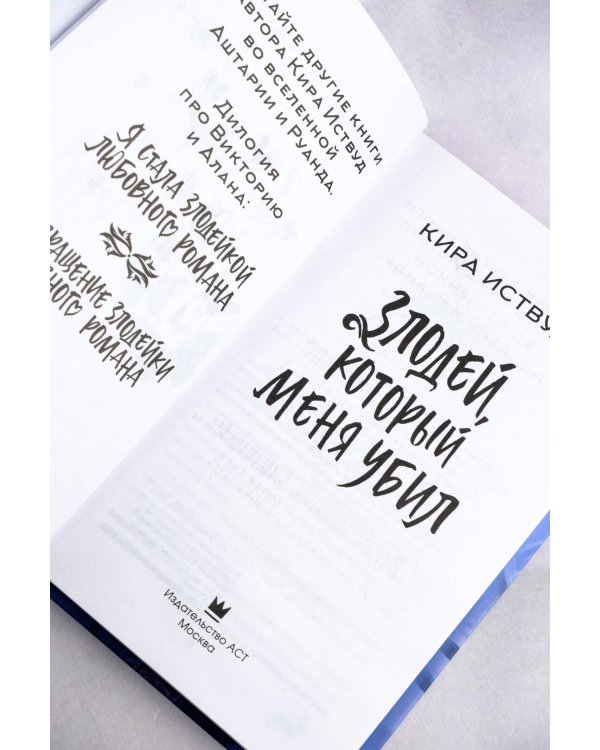 тайте другие книги
автора Кира Иствуд
во вселенной
Аштарии и Руанда.
Дилогия
про Викторию
и Алана:
Я стала злодейкой
любовного романа
ращение злодейки
вного романа
Кира Иствуд
Злодей,
который
меня убил
Издательство АСТ
Москва